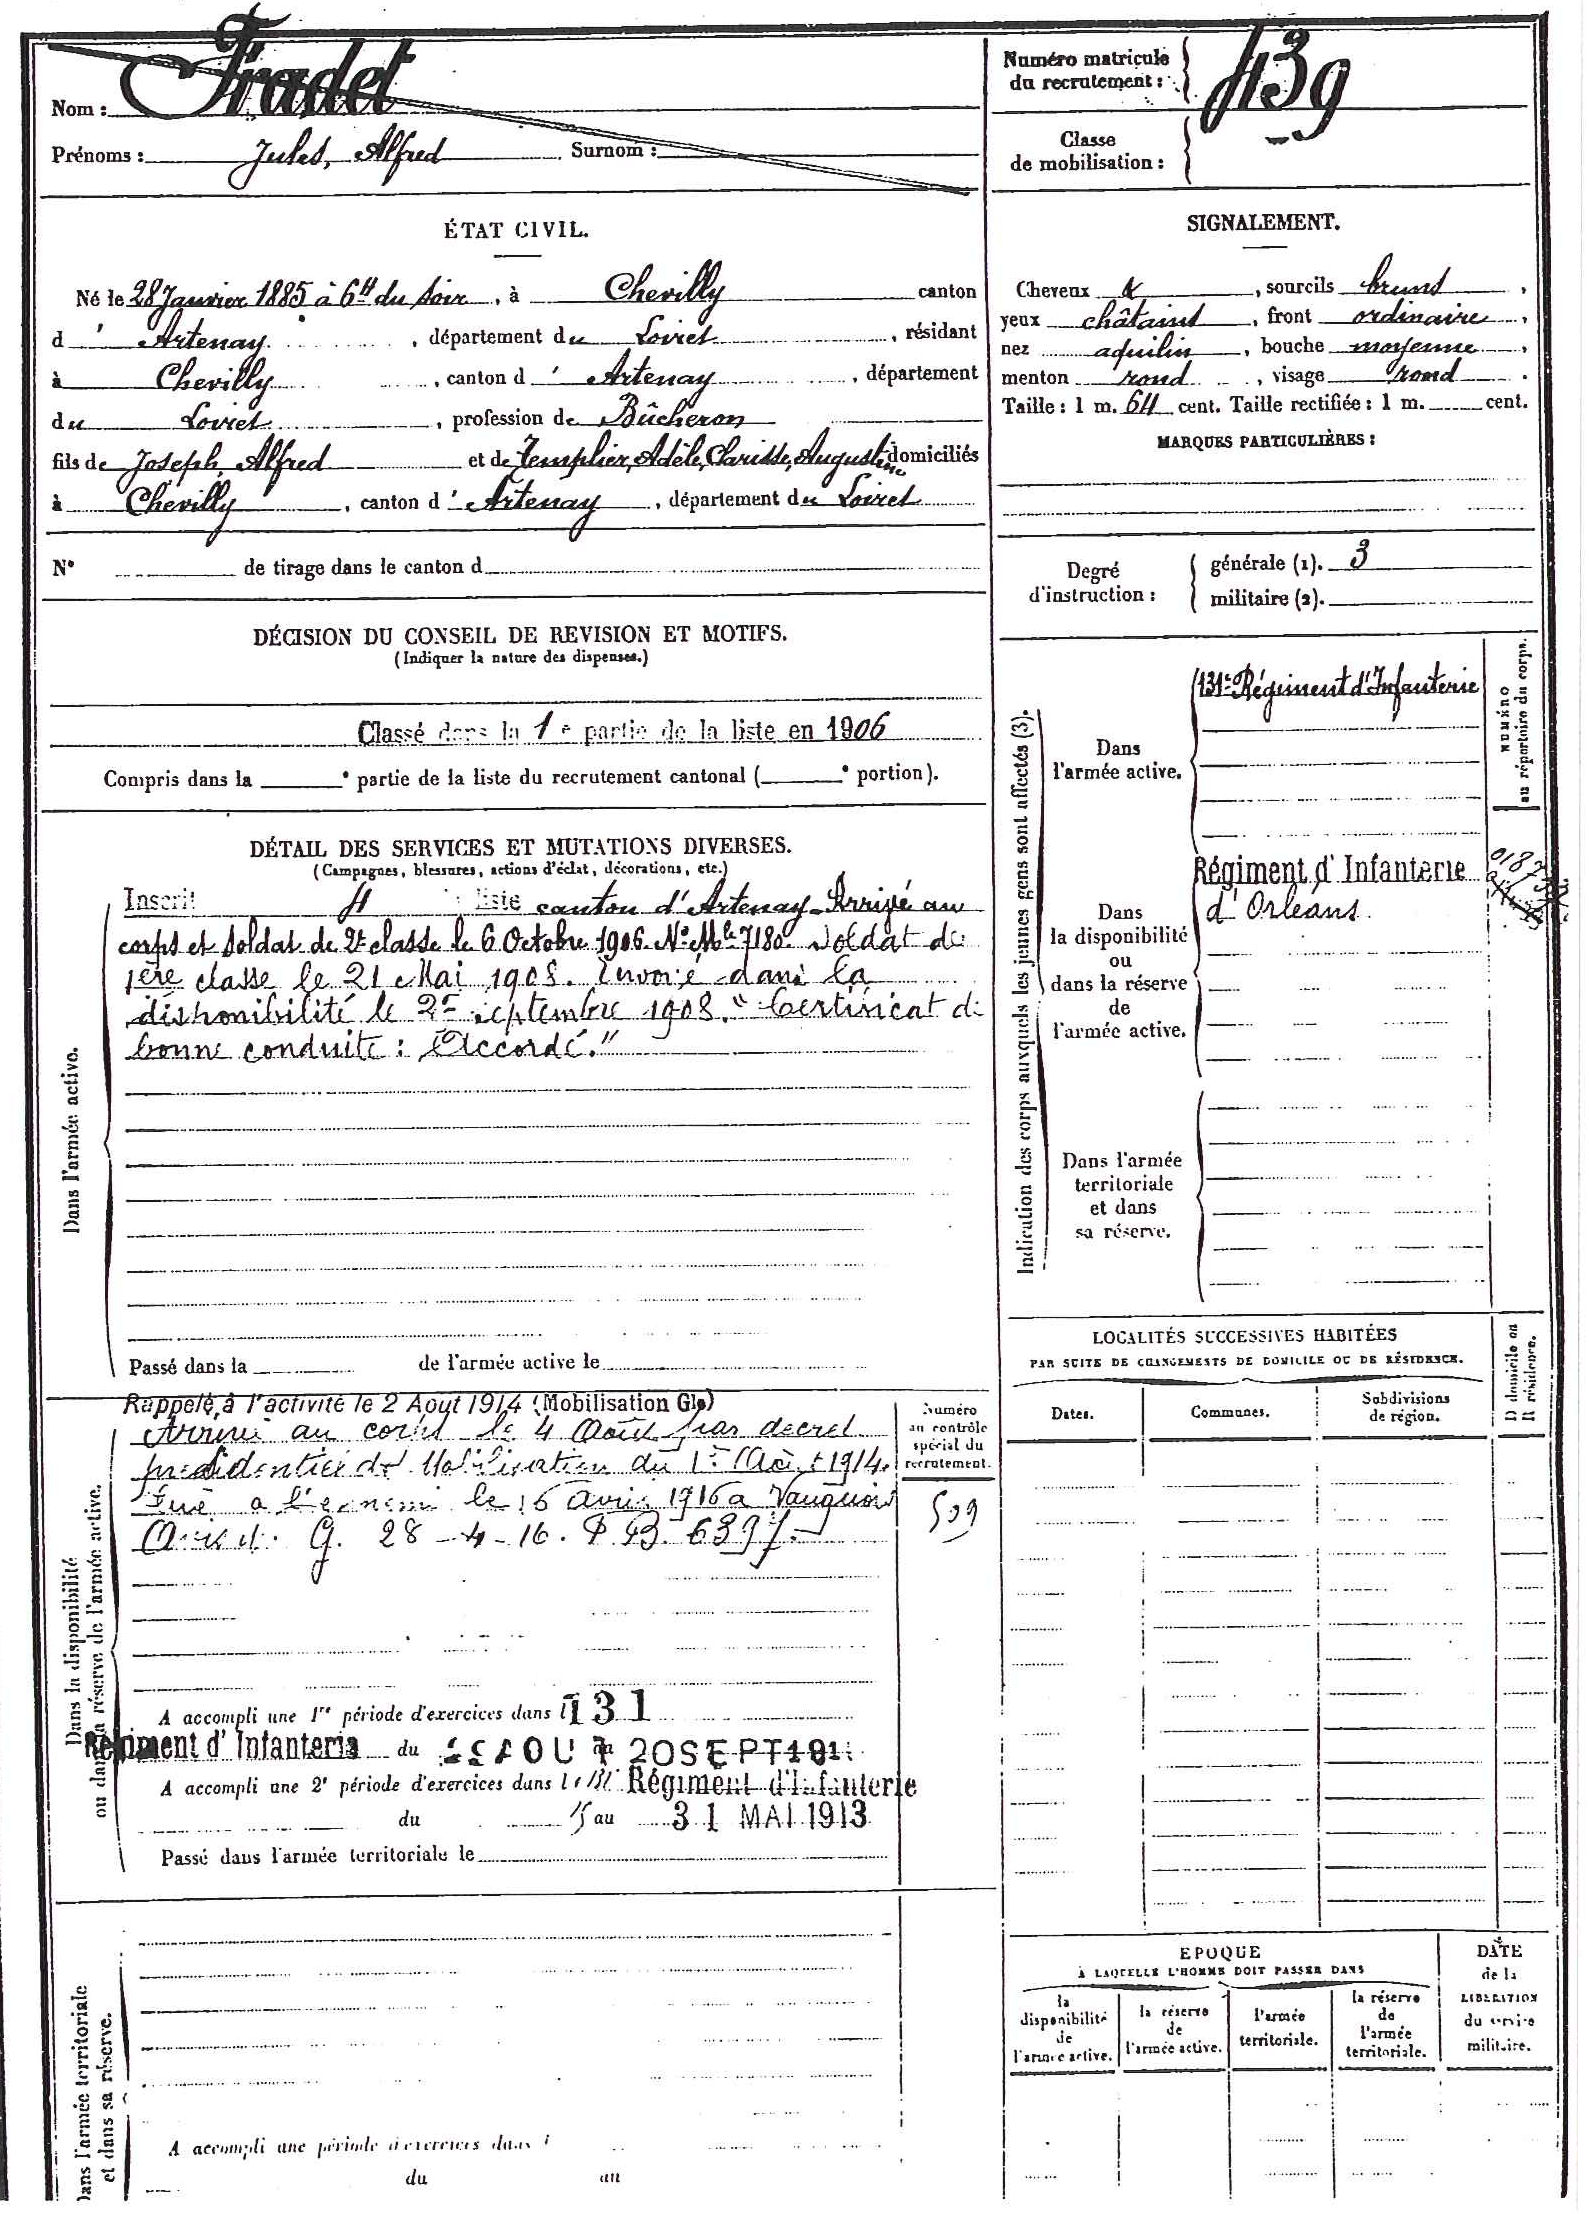 Nom : Fradet
Prénoms : Jules, Alfred Surnom :
Numéro matricule
du recrutement : 439
Classe
de mobilisation :
ÉTAT CIVIL.
Né le 28 Janvier 1885 à 6h du soir, à Chevilly canton
d' Artenay, département du Loiret, résidant
à Chevilly, canton d' Artenay, département
du Loiret, profession de Bûcheron
fils de Joseph, Alfred et de Templier, Adèle, Clarisse, Augustine domiciliés
à Chevilly, canton d' Artenay, département du Loiret
N° de tirage dans le canton d
DÉCISION DU CONSEIL DE REVISION ET MOTIFS.
(Indiquer la nature des dispenses.)
Classé dans la 1e partie de la liste en 1906
Compris dans la e partie de la liste du recrutement cantonal ( e portion).
DÉTAIL DES SERVICES ET MUTATIONS DIVERSES.
(Campagnes, blessures, actions d'éclat, décorations, etc.)
Dans l'armée active.
Inscrit 4 liste canton d'Artenay. Arrivé au
corps et soldat de 2e classe le 6 Octobre 1906. No Mle 7180. Soldat de
1ère classe le 21 Mai 1908. Envoyé dans la
disponibilité le 2 septembre 1908. "Certificat de
bonne conduite : Accordé."
Passé dans la de l'armée active le
Dans la disponibilité
ou dans la réserve de l'armée active.
Rappelé à l'activité le 2 Aout 1914 (Mobilisation Gle)
Arrivé au corps le 4 Août par decret
présidentiel de Mobilisation du 1er Août 1914.
Tué a l'ennemi le 16 avril 1916 a Vauquois
G. 28-4-16. P.B. 6397.
Numéro
au contrôle
spécial du
recrutement.
A accompli une 1re période d'exercices dans l 131
Régiment d'Infanterie du AOUT au 20 SEPT 191
A accompli une 2e période d'exercices dans le 131e Régiment d'Infanterie
du 15 au 31 MAI 1913
Passé dans l'armée territoriale le
Dans l'armée territoriale
et dans sa réserve.
A accompli une période d'exercices dans l
du au
SIGNALEMENT.
Cheveux &, sourcils bruns,
yeux châtains, front ordinaire,
nez aquilin, bouche moyenne,
menton rond, visage rond.
Taille : 1 m. 64 cent. Taille rectifiée : 1 m. cent.
MARQUES PARTICULIÈRES :
Degré
d'instruction :
générale (1). 3
militaire (2).
Indication des corps auxquels les jeunes gens sont affectés (3).
NUMÉRO
au répertoire du corps.
Dans
l'armée active.
131e Régiment d'Infanterie
Dans
la disponibilité
ou
dans la réserve
de
l'armée active.
Régiment d'Infanterie
d'Orléans
Dans l'armée
territoriale
et dans
sa réserve.
LOCALITÉS SUCCESSIVES HABITÉES
PAR SUITE DE CHANGEMENTS DE DOMICILE OU DE RÉSIDENCE.
Dates. Communes. Subdivisions
de région.
D domicile ou
R résidence.
EPOQUE
À LAQUELLE L'HOMME DOIT PASSER DANS
la
disponibilité
de
l'armée active.
la réserve
de
l'armée active.
l'armée
territoriale.
la réserve
de
l'armée
territoriale.
DATE
de la
LIBÉRATION
du service
militaire.